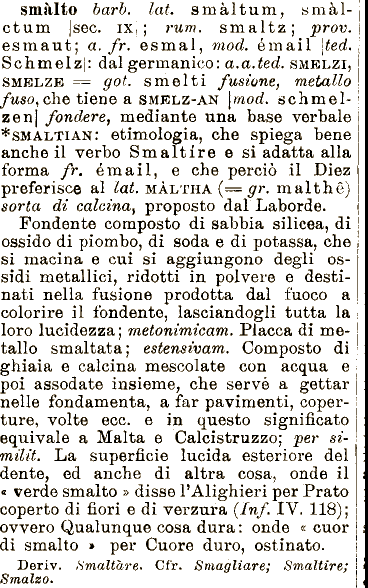 smàlto barb. lat. smàltum, smàl-
ctum |sec. IX|; rum. smaltz; prov.
esmaut; a. fr. esmal, mod. émail |ted.
Schmelz|: dal germanico: a.a.ted. SMELZI,
SMELZE = got. smelti fusione, metallo
fuso, che tiene a SMELZ-AN |mod. schmel-
zen| fondere, mediante una base verbale
*SMALTIAN: etimologia, che spiega bene
anche il verbo Smaltíre e si adatta alla
forma fr. émail, e che perciò il Diez
preferisce al lat. MÀLTHA (= gr. malthê)
sorta di calcina, proposto dal Laborde.
Fondente composto di sabbia silicea, di
ossido di piombo, di soda e di potassa, che
si macina e cui si aggiungono degli os-
sidi metallici, ridotti in polvere e desti-
nati nella fusione prodotta dal fuoco a
colorire il fondente, lasciandogli tutta la
loro lucidezza; metonimicam. Placca di me-
tallo smaltata; estensivam. Composto di
ghiaia e calcina mescolate con acqua e
poi assodate insieme, che serve a gettar
nelle fondamenta, a far pavimenti, coper-
ture, volte ecc. e in questo significato
equivale a Malta e Calcistruzzo; per si-
milit. La superficie lucida esteriore del
dente, ed anche di altra cosa, onde il
« verde smalto » disse l'Alighieri per Prato
coperto di fiori e di verzura (Inf. IV. 118);
ovvero Qualunque cosa dura: onde « cuor
di smalto » per Cuore duro, ostinato.
Deriv. Smaltàre. Cfr. Smagliare; Smaltire;
Smalzo.